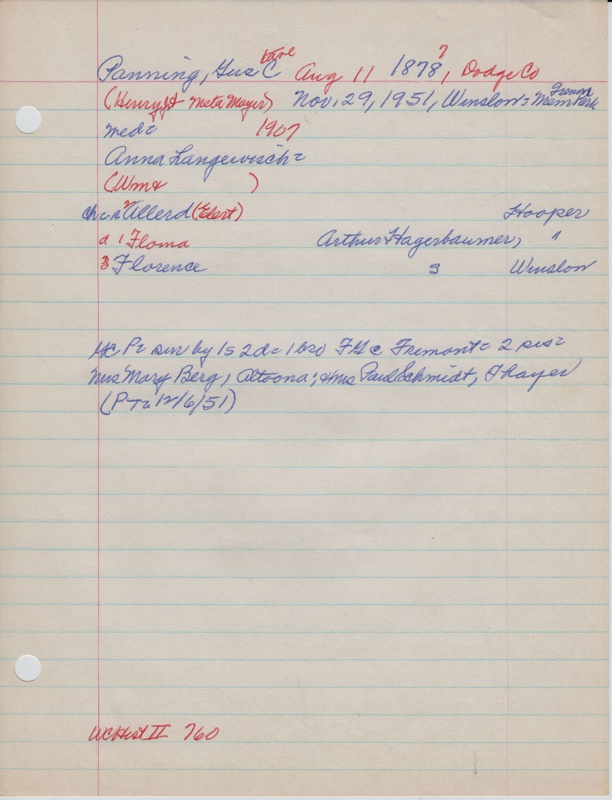 Panning, Gus C tave Aug 11 1878 7, Dodge Co
(Henry & Meta Mayer) Nov. 29, 1951, Winslow = Mem Park Fremont
med = 1907
Anna Langewisch =
(Wm & )
ch = s 2 Allerd (Ebert) Hooper
d 1 Floma Arthur Hagerbaumer, "
3 Florence s Winslow
P = sur by 1s 2d = 1 bro F G c Fremont = 2 sis =
Mrs Mary Berg, Altoona; Mrs Paul Schmidt, Thayer
(PT = 12/6/51)
WCHist II 760